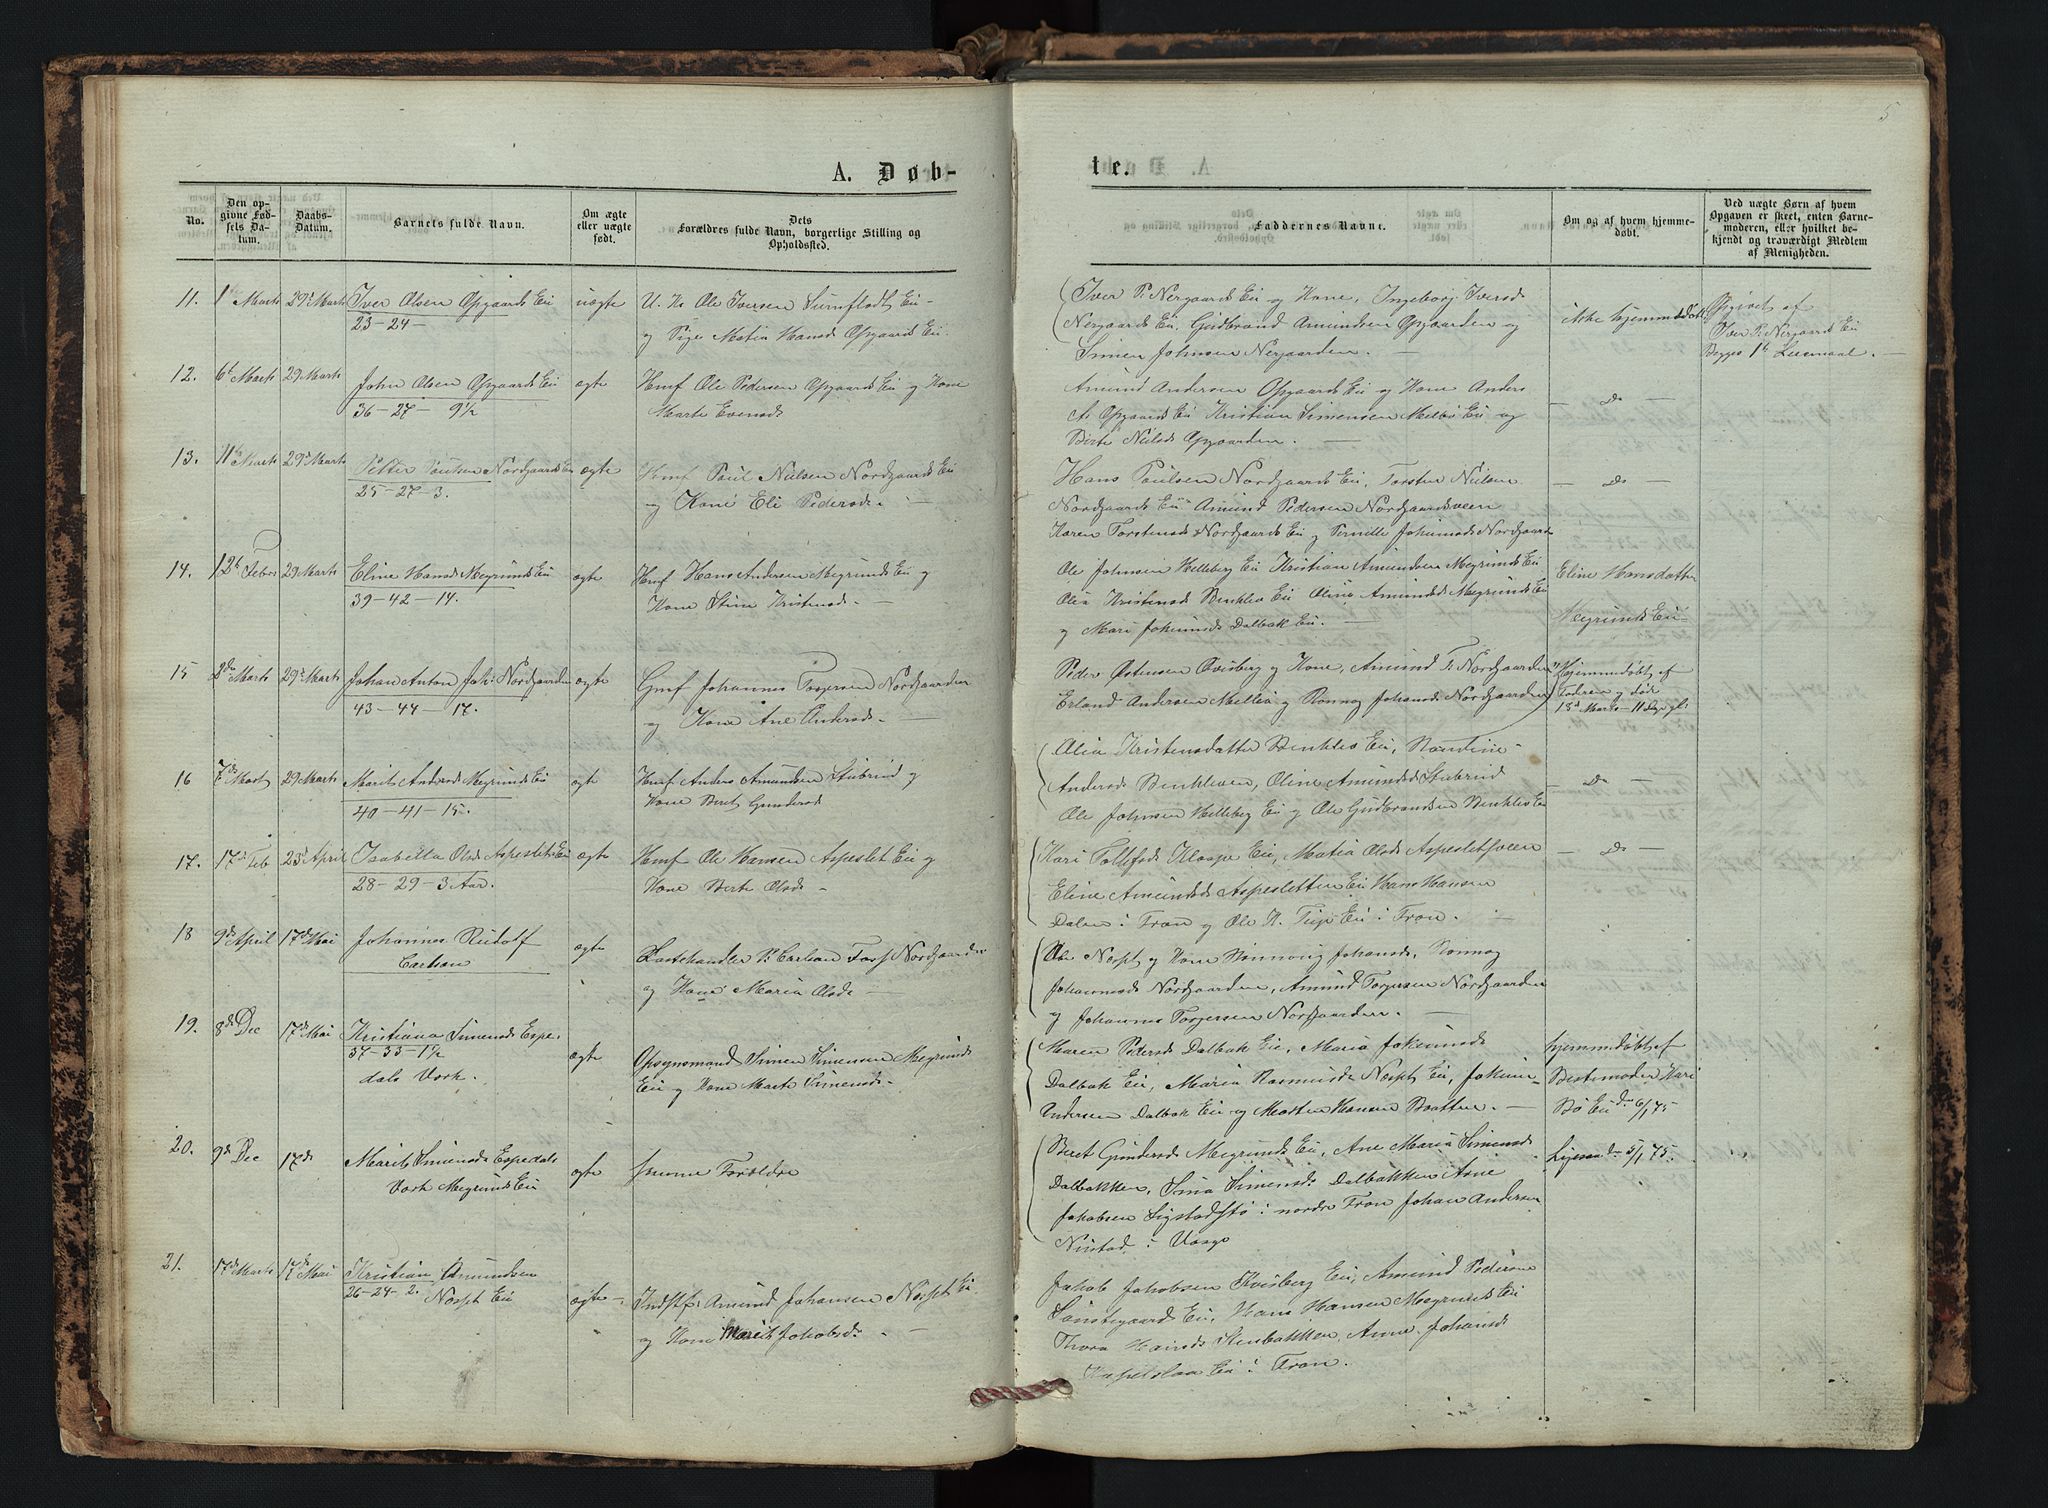 5
A. Døb-
te.
No.
Den op-
givne Fød-
sels Da-
tum.
Daabs-
Datum.
Barnets fulde Navn.
Om ægte
eller uægte
født.
Dets
Forældres fulde Navn, borgerlige Stilling og
Opholdssted.
Faddernes Navne.
Om og af hvem hjemme-
døbt.
Ved uægte Børn af hvem
Opgaven er skeet, enten Barne-
moderen, eller hvilket be-
kjendt og troværdigt Medlem
af Menigheden.
11.
1ste Marts
29d Marts
Iver Olsen Opgaards Eii
23-24-
uægte
U. Ks Ole Iversen Eii -
og Pige Matia Hansd Opgaards Eii
Iver P. Nergaards Eii og Kone, Ingeborg Iversd
Nergaards Eii, Gudbrand Amundsen Opgaarden og
Simen Johnsen Nergaarden. -
ikke hjemmedøbt
Opgivet af
Iver P. Nergaards Eii
Begges 1te Leiermaal. -
12.
6t Marts
29 Marts
John Olsen Opgaards Eii
36-27-9½
ægte
Hmf Ole Pedersen Opgaards Eii og Kone
Marte Evensd.
Amund Andersen Opgaards Eii og Kone Anders
A. Opgaards Eii Kristian Simensen Melbø Eii og
Berte Nielsd Opgaarden. -
- Do -
13.
11te Marts
29d Marts
Petter Paulsen Nordgaards Eii
25-27-3.
ægte
Hmf Paul Nielsen Nordgaards Eii
og Kone Eli Pedersd. -
Hans Paulsen Nordgaards Eii, Torsten Nielsen
Nordgaards Eii Amund Pedersen Nordgaardsveen
Karen Torstensd Nordgaards Eii og Pernille Johannesd Nordgaard
- Do -
14.
12te Febr
29 Marts
Eline Hansd Megrunds Eii
39-42-14.
ægte
Hmf Hans Andersen Megrunds Eii og
Kone Stine Kristensd. -
Ole Johnsen Helleberg Eii Kristian Amundsen Megrunds Eii
Olia Kristensd Eii Oline Amundsd Megrunds Eii
og Mari Johannesd Dalbak Eii. -
Eline Hansdatter
Megrunds Eii.
15
8de Marts
29d Marts
Johan Anton Joh: Nordgaarden
43-44-17.
ægte
Gmf Johannes Torgersen Nordgaarden
og Kone Ane Andersd. -
Peder Østensen Qvisberg og Kone, Amund T. Nordgaarden
Erland Andersen og Rønnog Johansd Nordgaarden
Hjemmedøbt af
Faderen og død
18d Marts - 11 Dage gl:
16
7de Marts
29 Marts
Marit Andersd Megrunds Eii
40-41-15.
ægte
Hmf Anders Amundsen Stubrud og
Kone Beret Gundersd
Olia Kristensdatter Eii, Randine
Andersd, Oline Amundsd Stubrud
Ole Johnsen Helleberg Eii og Ole Gudbrandsen Eii
- Do -
17.
17d Feb
23d April
Isabella Olsd Aspeslet Eii
28-29-3 Aar.
ægte
Hmf Ole Hansen Aspeslet Eii og
Kone Berte Olsd. -
Kari Tollefsd Eii, Matia Olsd Aspesletsveen
Eline Amundsd Aspesletten Eii Hans Hansen
Dalen i Fron og Ole H. Eii i Fron. -
- Do -
18
9de April
17de Mai
Johannes Rudolf
Carlson
ægte
Lastehandler P. Carlson Nordgaarden
og Kone Maria Olsd. -
Ole Nospt og Kone Rønnoug Johansd, Rønnog
Johannesd Nordgaarden, Amund Torgersen Nordgaarden
og Johannes Torgersen Nordgaarden. -
19.
8de Dec
17de Mai
Kristiana Simensd Espe-
37-33-1½
dals Voik.
ægte
Opsynsmand Simen Simensen Megrunds
Eii og Kone Marte Simensd. -
Maren Pedersd Dalbak Eii, Maria Johannesd
Dalbak Eii, Maria Rasmusd Nospt Eii, Johannes
Andersen Dalbak Eii og Morten Hansen Braatten. -
hjemmedøbt af
Bestemoder Kari
Bø Eii den 6/1 75
20.
9d Dec
17de
Marit Simensd Espedals
Vork Megrunds Eii
ægte
samme Forældre
Beret Gundersd Megrunds Eii, Ane Maria Simensd
Dalbakken, Sina Simensd. Dalbakken Arne
Jakobsen Sigstadstø i nordre Fron Johan Andersen
Nustad i Vaage
Ligesaa den 5/1 75.
21.
17d Marts
17de Mai
Kristian Amundsen
26-24-2. Nospt Eii
ægte -
Indst: Amund Johansen Nospt Eii
og Kone Marit Jakobsd. -
Jakob Jakobsen Kvisberg Eii, Amund Pedersen
Eii, Hans Hansen Megrunds Eii
Thora Hansd Stenbakken, Anne Johansd
Eii i Fron.